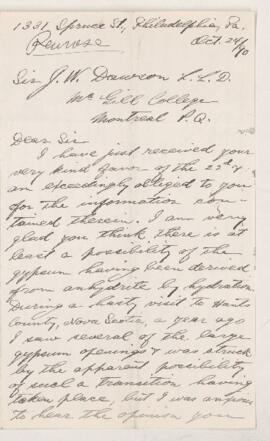 1331 Spruce St, Philadelphia, Pa.
Penrose
Oct. 24/90
Sir J. W. Dawson L.L.D.
McGill College
Montreal P.Q.
Dear Sir
I have just received your
very kind favor of the 22d &
am exceedingly obliged to you
for the information con-
tained therein. I am very
glad you think there is at
least a possibility of the
gypsum having been derived
from anhydrite by hydration
During a hasty visit to Hants
County, Nova Scotia, a year ago
I saw several of the large
gypsum openings & was struck
by the apparent possibility
of such a transition having
taken place, but I was anxious
to hear the opinion you